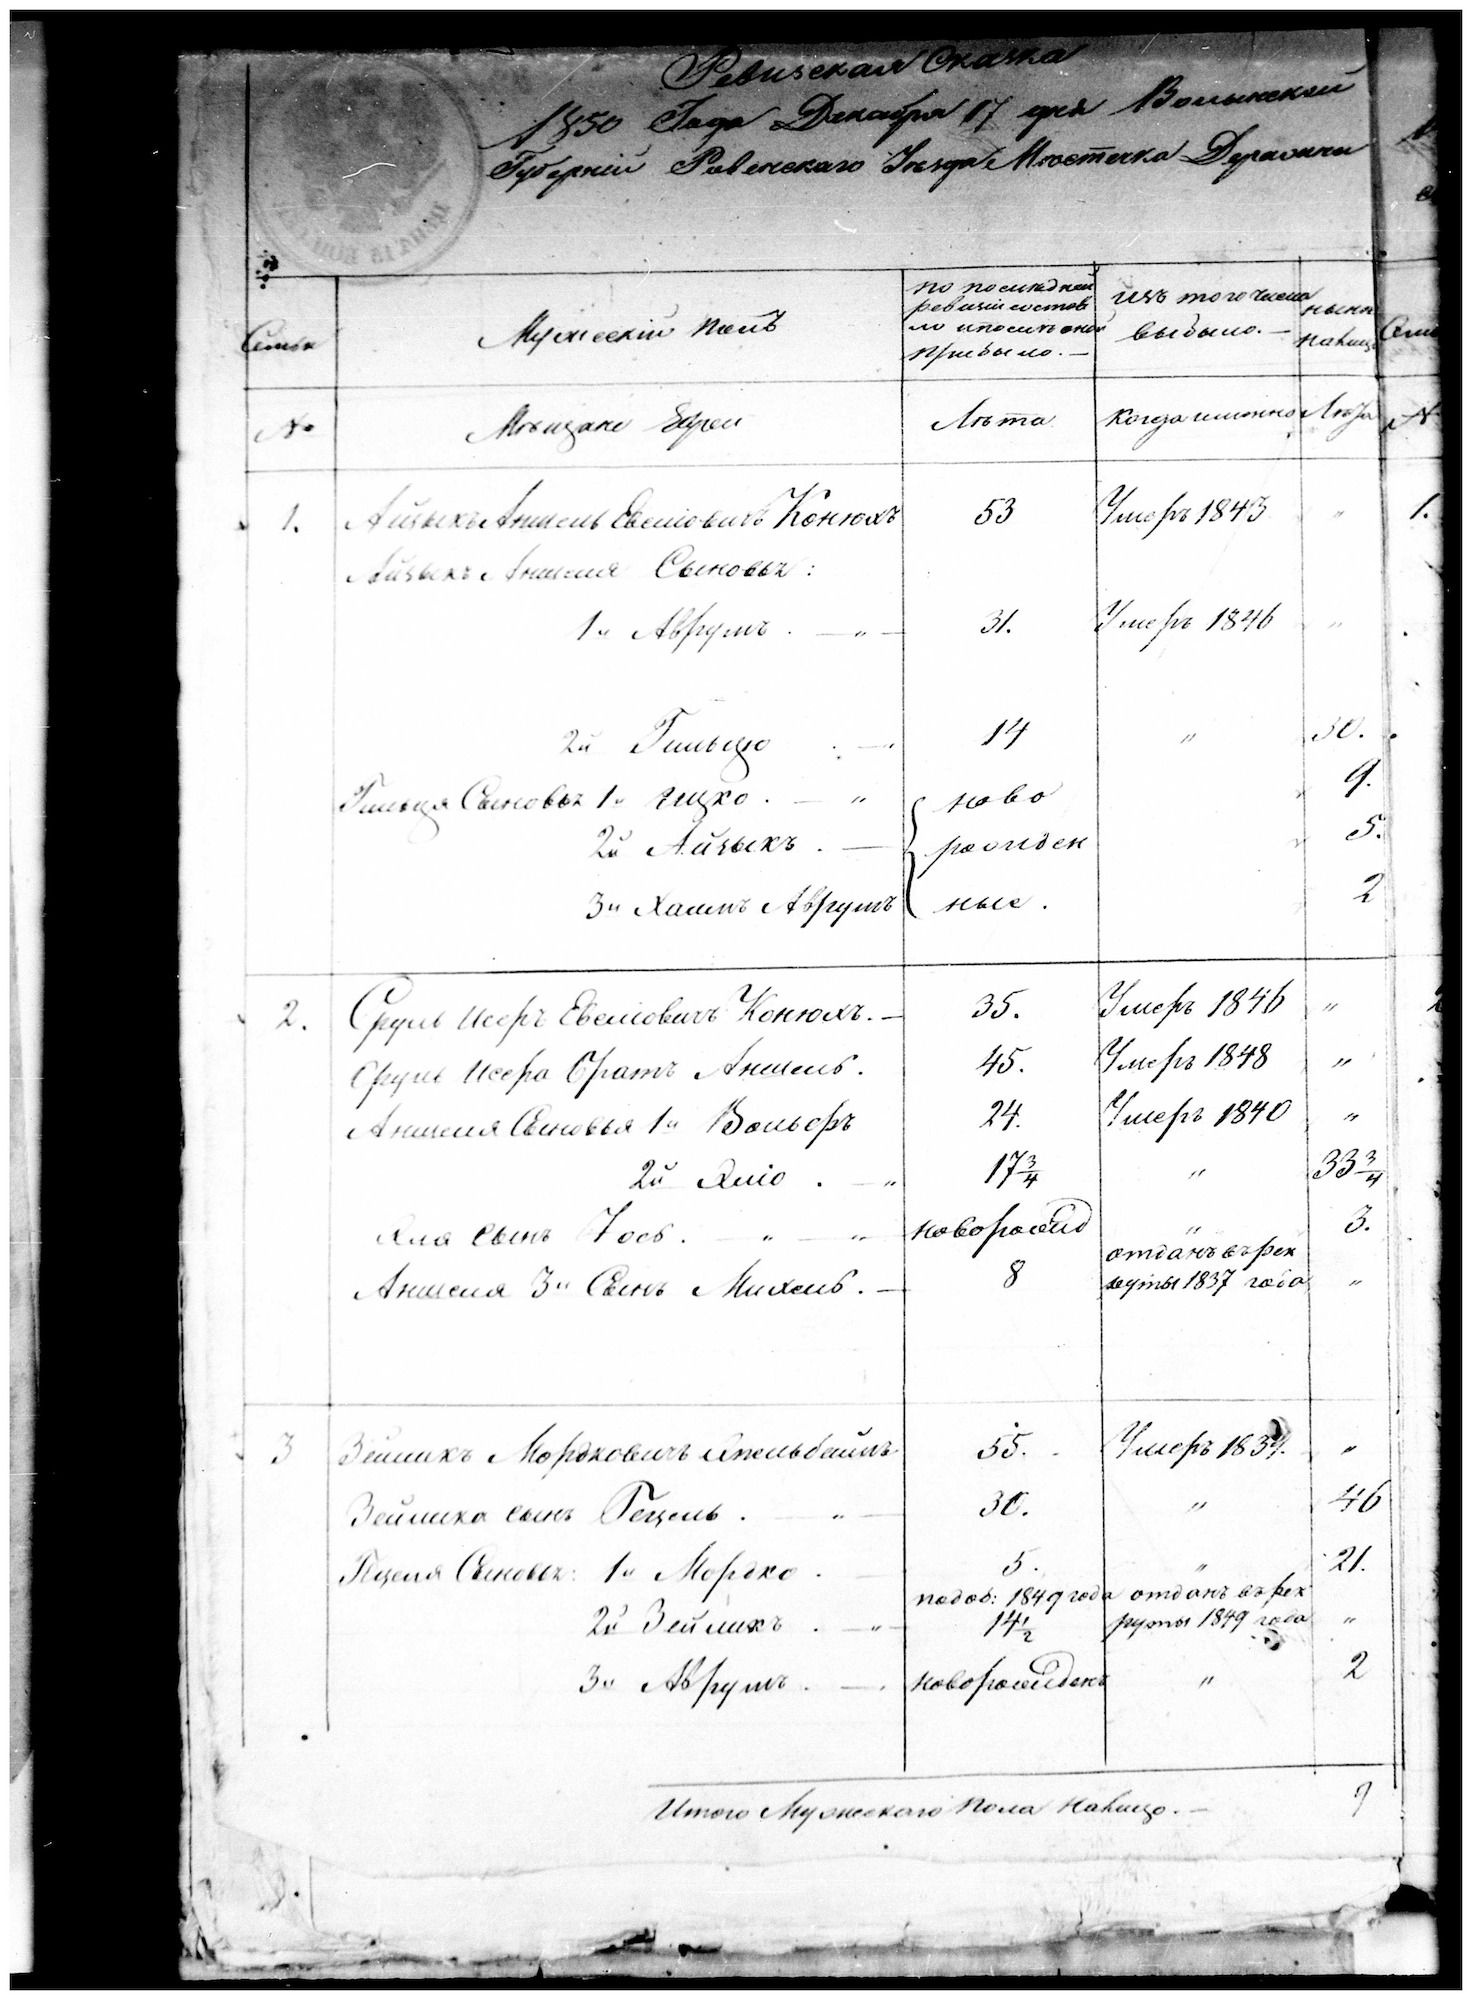 Ревизская Сказка
1850 Года Декабря 17 дня Волынской
Губерніи Ровенскаго Уезда Местечка Деражни
Семьи
Мужескій полъ
по последней
ревизіи состоя
ло и после оной
прибыло. —
изъ того числа
выбыло. —
ныне
налицо
№
Мещане Евреи
Лета
когда именно
Лета
1. Айзыкъ Аншель Евелiовичъ Конюхъ 53 Умеръ 1843 "
Айзыкъ Аншеля Сыновья:
1й Аврумъ . — " — 31. Умеръ 1846 "
2й Гильцо . — " 14 " 30.
Гильця Сыновья 1й Ицко . — " ново 9.
2й Айзыкъ . — рожден 5.
3й Хаимъ Аврумъ ные . 2
2. Сруль Исеръ Евелiовичъ Конюхъ. — 35. Умеръ 1846 "
Сруль Исера братъ Аншель . 45. Умеръ 1848 "
Аншеля Сыновья 1й Вольфъ 24. Умеръ 1840 "
2й Яліо . — " 17 3/4 " 33 3/4
Яля сынъ Іось . — " — " новорожд " 3.
Аншеля 3й Сынъ Михель . — 8 отданъ въ рек
руты 1837 года "
3 Зейликъ Мордковичъ 55. Умеръ "
Зейлика сынъ Гецель . — " — 30. " 46
Гецеля Сыновья: 1й Мордко . 5. " 21.
2й Зейликъ . — " 1849 года
14 1/2 отданъ въ рек
руты 1849 года "
3й Аврумъ . — новорожденъ " 2
Итого Мужескаго пола налицо. — 9
1.